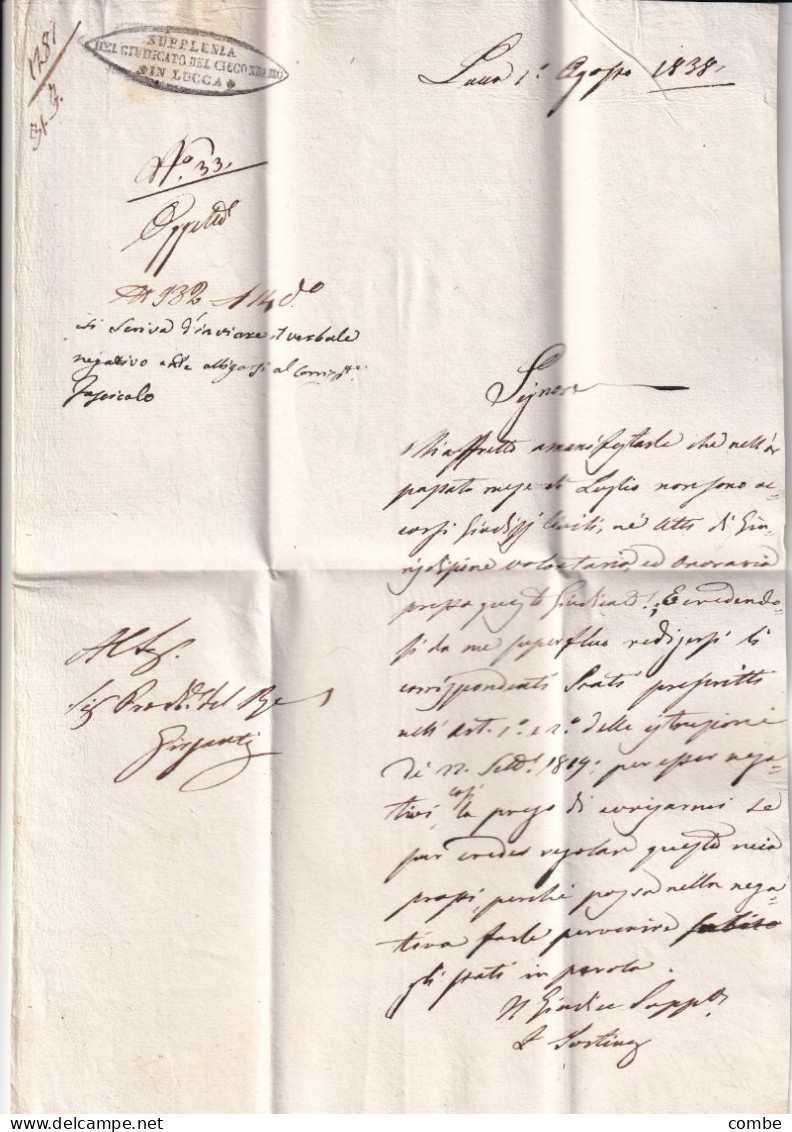 1281
SUPPLENZA
DEL GIUDICATO DEL CIRCONDARIO
IN LUCCA
Lucca 1.° Agosto 1838.
N.° 33.
Oggetto
si scriva d'inviare il verbale
negativo alligarsi al
fascicolo
Signore
Mi affretto a manifestarle che nell'or
passato mese di Luglio non sono oc-
corsi Giudizj Civili, nè Atti di Giu-
risdizione volontaria, ed onoraria
presso questo Giudicato; E credendo-
si da me superfluo redigersi li
corrispondenti Stati prescritti
nell'art. 1.° e 2.° delle istruzioni
di 22. Sett. 1819. per esser nega-
tivi, così la prego di
pur crede regolare questa mia
prassi, perchè possa nella nega-
tiva farle pervenire subito
gli stati in parola.
Al Sig.
Sig. Proc. del Re
Girgenti
Il Giudice Supp.